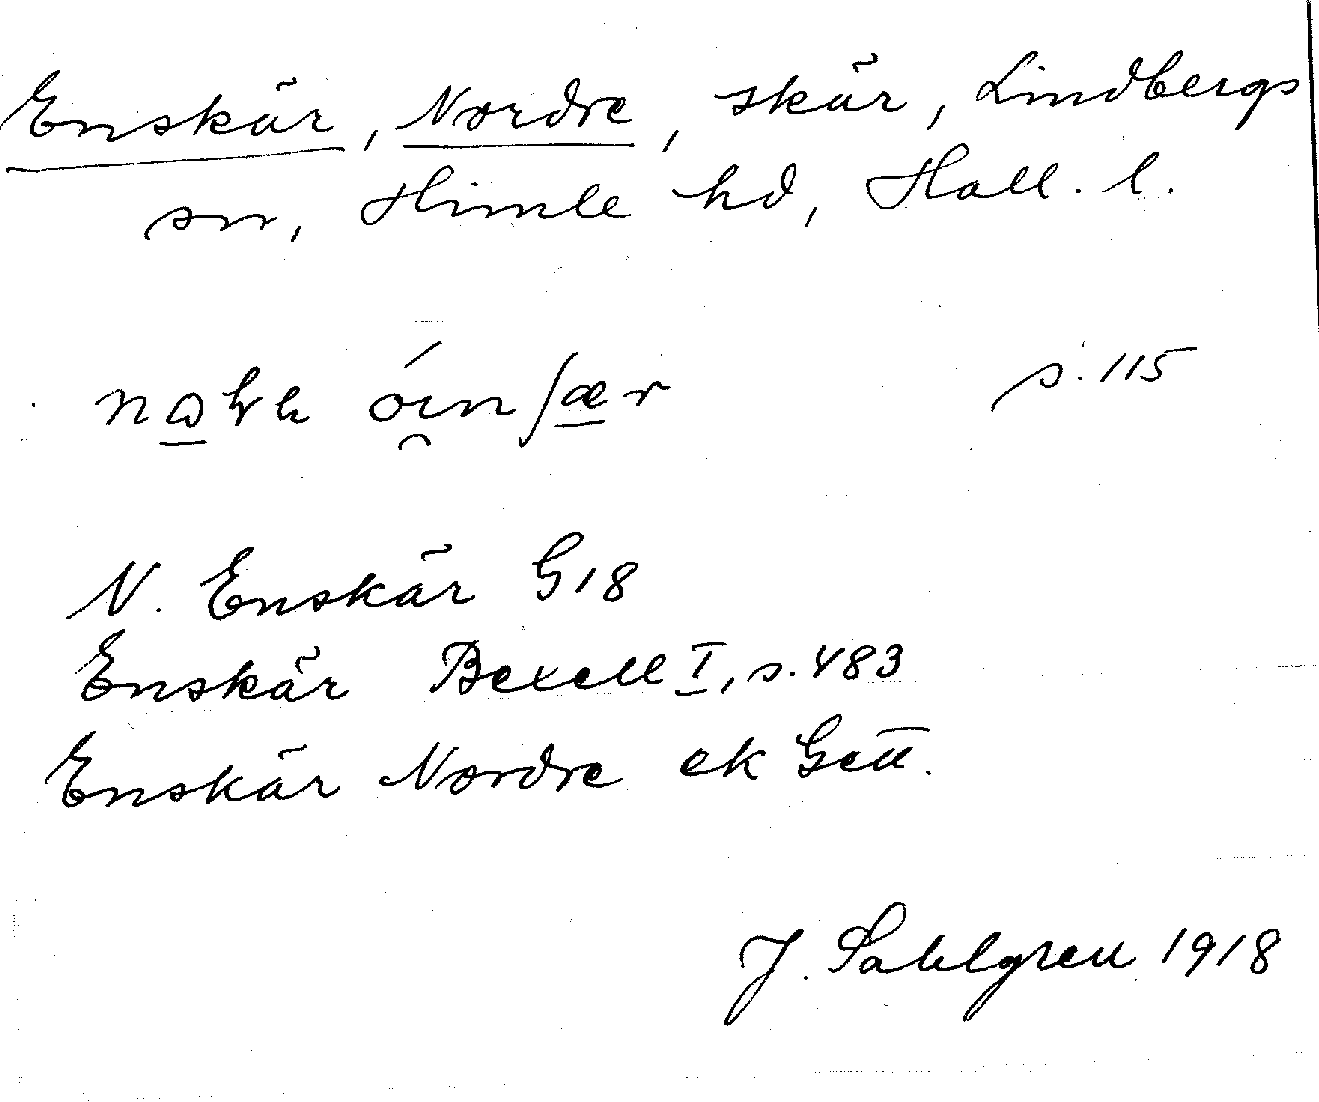 Enskär, Nordre, skär, Lindbergs
sn, Himle hd, Hall. l.
s. 115
N. Enskär G18
Enskär Bexell I, s. 483
Enskär Nordre ek Gett.
J. Sahlgren 1918